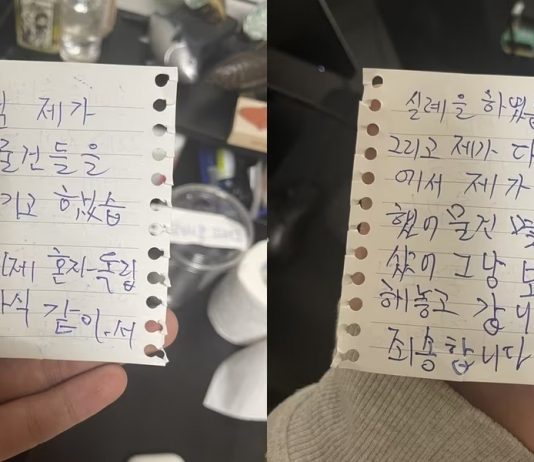 제가
물건들을
기고 했습
이제 혼자-독립
자식 같이-서
실례을 하였습
그리고 제가 다
에서 제가
했이 물건
샀이 그냥 보
해놓고 갑니
죄송합니다